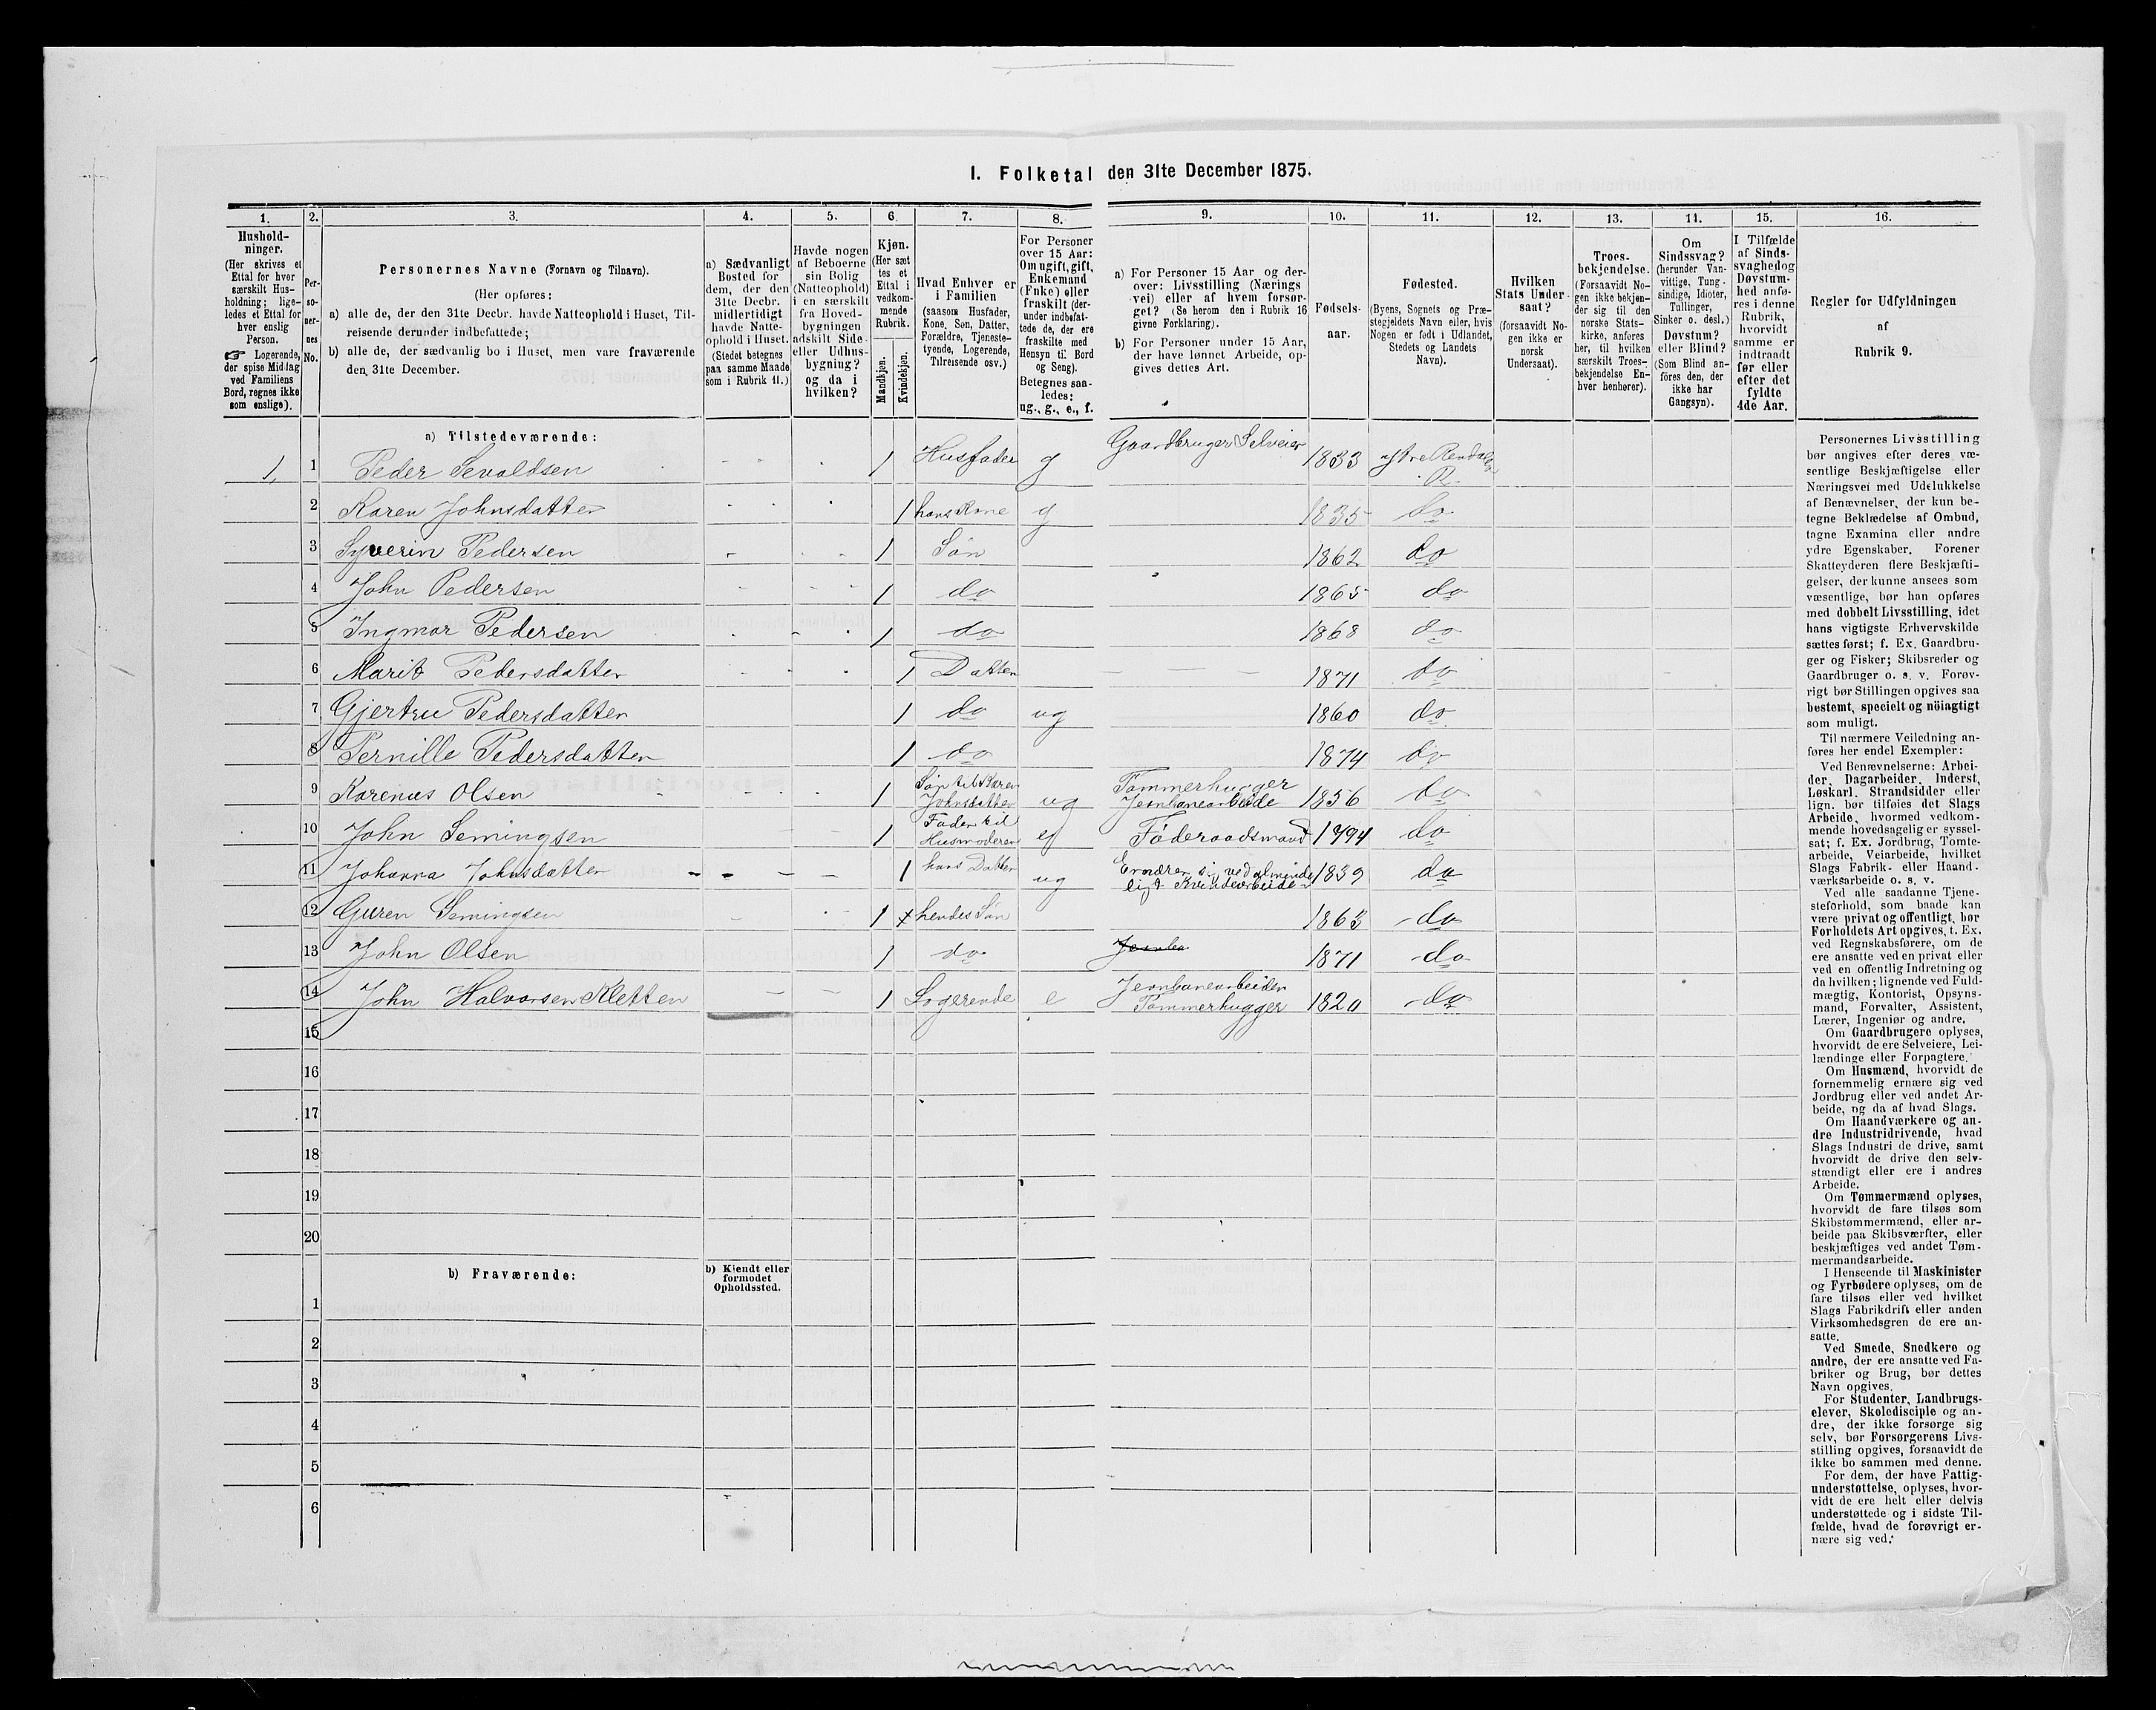 I. Folketal den 31te December 1875.
1.
2.
3.
4.
5.
6.
7.
8.
9.
10.
11.
12.
13.
14.
15.
16.
Hushold-
ninger.
(Her skrives et
Ettal for hver
særskilt Hus-
holdning; lige-
ledes et Ettal for
hver enslig
Person.
☞ Logerende,
der spise Middag
ved Familiens
Bord, regnes ikke
som enslige).
Per-
so-
ner-
nes
No.
Personernes Navne (Fornavn og Tilnavn).
(Her opføres:
a) alle de, der den 31te Decbr. havde Natteophold i Huset, Til-
reisende derunder indbefattede;
b) alle de, der sædvanlig bo i Huset, men vare fraværende
den 31te December.
a) Sædvanligt
Bosted for
dem, der den
31te Decbr.
midlertidigt
havde Natte-
ophold i Huset.
(Stedet betegnes
paa samme Maade
som i Rubrik 11.)
Havde nogen
af Beboerne
sin Bolig
(Natteophold)
i en særskilt
fra Hoved-
bygningen
adskilt Side-
eller Udhus-
bygning?
og da i
hvilken?
Kjøn.
(Her sæt
tes et
Ettal i
vedkom-
mende
Rubrik.
Mandkjøn.
Kvindekjøn.
Hvad Enhver er
i Familien
(saasom Husfader,
Kone, Søn, Datter,
Forældre, Tjeneste-
tyende, Logerende,
Tilreisende osv.)
For Personer
over 15 Aar:
Om ugift, gift,
Enkemand
(Enke) eller
fraskilt (der-
under indbefat-
tede de, der ere
fraskilte med
Hensyn til Bord
og Seng).
Betegnes saa-
ledes:
ug., g., e., f.
a) For Personer 15 Aar og der-
over: Livsstilling (Nærings
vei) eller af hvem forsør-
get? (Se herom den i Rubrik 16
givne Forklaring).
b) For Personer under 15 Aar,
der have lønnet Arbeide, op-
gives dettes Art.
Fødsels-
aar.
Fødested.
(Byens, Sognets og Præ-
stegjeldets Navn eller, hvis
Nogen er født i Udlandet,
Stedets og Landets
Navn).
Hvilken
Stats Under-
saat?
(forsaavidt No-
gen ikke er
norsk
Undersaat).
Troes-
bekjendelse.
(Forsaavidt No-
gen ikke bekjen-
der sig til den
norske Stats-
kirke, anføres
her, til hvilken
særskilt Troes-
bekjendelse En-
hver henhører).
Om
Sindssvag?
(herunder Van-
vittige, Tung-
sindige, Idioter,
Tullinger,
Sinker o. desl.)
Døvstum?
eller Blind?
(Som Blind an-
føres den, der
ikke har
Gangsyn).
I Tilfælde
af Sinds-
svaghed og
Døvstum-
hed anfø-
res i denne
Rubrik,
hvorvidt
samme er
indtraadt
før eller
efter det
fyldte
4de Aar.
Regler for Udfyldningen
af
Rubrik 9.
a) Tilstedeværende:
1, 1 Peder Sevaldsen 1 Husfader g Gaardbruger Selveier 1833
2 Karen Johnsdatter 1 hans Kone g 1835 do
3 Syverin Pedersen 1 Søn 1862 do
4 John Pedersen 1 do 1865 do
5 Ingmar Pedersen 1 do 1868 do
6 Marit Pedersdatter 1 Datter 1871 do
7 Gjertru Pedersdatter 1 do ug 1860 do
8 Pernille Pedersdatter 1 do 1874 do
9 Karenus Olsen 1 Søn til Karen Johnsdatter ug Tømmerhugger Jernbanearbeide 1856 do
10 John Semingsen 1 Fader til Husmoderen Føderaadsmand 1794 do
11 Johanna Johnsdatter 1 hans Datter ug Ernærer sig ved alminde ligt Kvindearbeide 1839 do
12 Guren Semingsen 1 hendes Søn 1863 do
13 John Olsen 1 do 1871 do
14 John Halvorsen Kletten 1 Logerende e Jernbanearbeider Tømmerhugger 1820 do
15
16
17
18
19
20
b) Fraværende:
b) Kjendt eller
formodet
Opholdssted.
1
2
3
4
5
6
Personernes Livsstilling
bør angives efter deres væ-
sentlige Beskjæftigelse eller
Næringsvei med Udelukkelse
af Benævnelser, der kun be-
tegne Beklædelse af Ombud,
tagne Examina eller andre
ydre Egenskaber. Forener
Skatteyderen flere Beskjæfti-
gelser, der kunne ansees som
væsentlige, bør han opføres
med dobbelt Livsstilling, idet
hans vigtigste Erhvervskilde
sættes først; f. Ex. Gaardbru-
ger og Fisker; Skibsreder og
Gaardbruger o. s. v. Forøv-
rigt bør Stillingen opgives saa
bestemt, specielt og nöiagtigt
som muligt.
Til nærmere Veiledning an-
føres her endel Exempler:
Ved Benævnelserne: Arbei-
der, Dagarbeider, Inderst,
Løskarl, Strandsidder eller
lign. bør tilføies det Slags
Arbeide, hvormed vedkom-
mende hovedsagelig er syssel-
sat; f. Ex. Jordbrug, Tomte-
arbeide, Veiarbeide, hvilket
Slags Fabrik- eller Haand-
værksarbeide o. s. v.
Ved alle saadanne Tjene-
steforhold, som baade kan
være privat og offentligt, bør
Forholdets Art opgives, t. Ex.
ved Regnskabsførere, om de
ere ansatte ved en privat eller
ved en offentlig Indretning og
da hvilken; lignende ved Fuld-
mægtig, Kontorist, Opsyns-
mand, Forvalter, Assistent,
Lærer, Ingeniør og andre.
Om Gaardbrugere oplyses,
hvorvidt de ere Selveiere, Lei-
lændinge eller Forpagtere.
Om Husmænd, hvorvidt de
fornemmelig ernære sig ved
Jordbrug eller ved andet Ar-
beide, og da af hvad Slags.
Om Haandværkere og an-
dre Industridrivende, hvad
Slags Industri de drive, samt
hvorvidt de drive den selv-
stændigt eller ere i andres
Arbeide.
Om Tømmermænd oplyses,
hvorvidt de fare tilsøs som
Skibstømmermænd, eller ar-
beide paa Skibsværfter, eller
beskjæftiges ved andet Tøm-
mermandsarbeide.
I Henseende til Maskinister
og Fyrbødere oplyses, om de
fare tilsøs eller ved hvilket
Slags Fabrikdrift eller anden
Virksomhedsgren de ere an-
satte.
Ved Smede, Snedkere og
andre, der ere ansatte ved Fa-
briker og Brug, bør dettes
Navn opgives.
For Studenter, Landbrugs-
elever, Skoledisciple og an-
dre, der ikke forsørge sig
selv, bør Forsørgerens Livs-
stilling opgives, forsaavidt de
ikke bo sammen med denne.
For dem, der have Fattig-
understøttelse, oplyses, hvor-
vidt de ere helt eller delvis
understøttede og i sidste Til-
fælde, hvad de forøvrigt er-
nære sig ved.